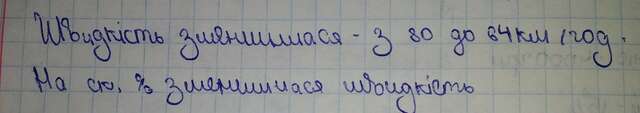 Швидкість зменшилася - з 80 до 64 км/год.
На ск. % зменшилася швидкість